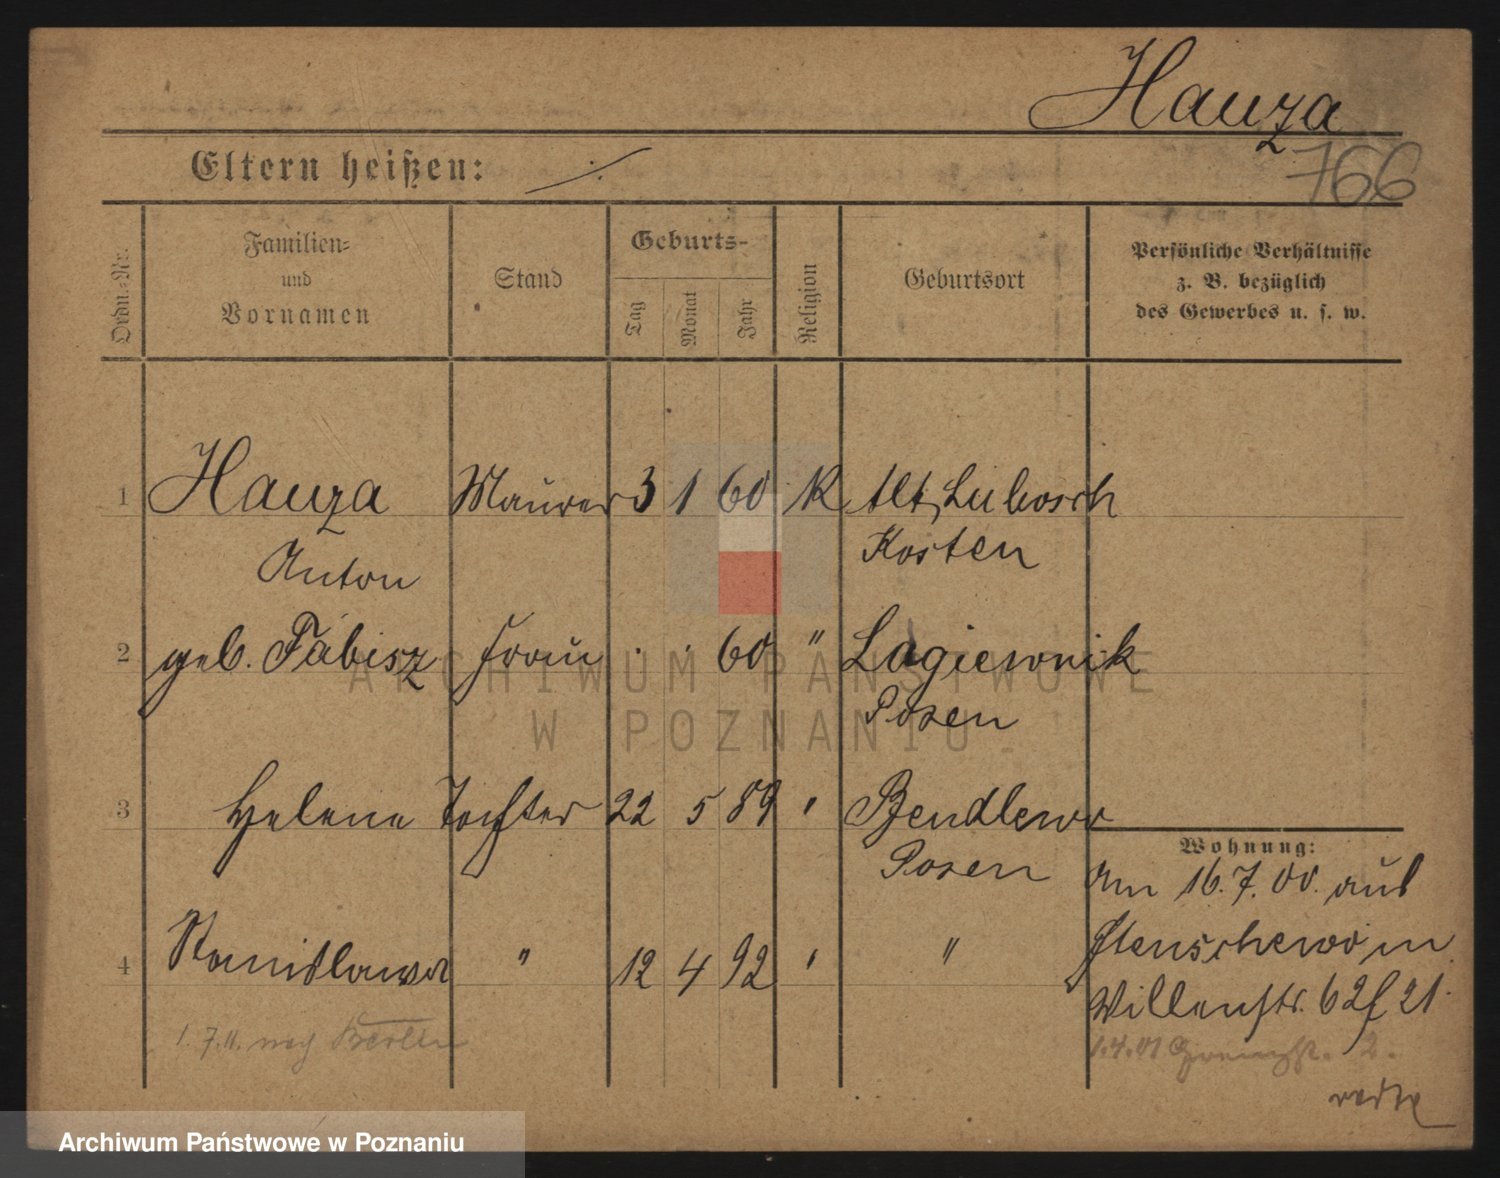 Hauza
766
Eltern heißen: ·/.
Ordn.-Nr.
Familien-
und
Vornamen
Stand
Geburts-
Tag
Monat
Jahr
Religion
Geburtsort
Persönliche Verhältnisse
z. B. bezüglich
des Gewerbes u. s. w.
1 Hauza Maurer 3 1 60 K Alt Lubosch
Anton Kosten
2 geb. Fabisz Frau · · 60 " Lagiewnik
Posen
ARCHIWUM PAŃSTWOWE
W POZNANIU
3 Helene Tochter 22 5 89 " Bendlewo
Posen
Wohnung:
Am 16.7.00. aus
Stenschewo in
4 Stanislawa " 12 4 92 " "
Willenstr. 62
1.7.11. nach Berlin
1.4.01 2.
Archiwum Państwowe w Poznaniu